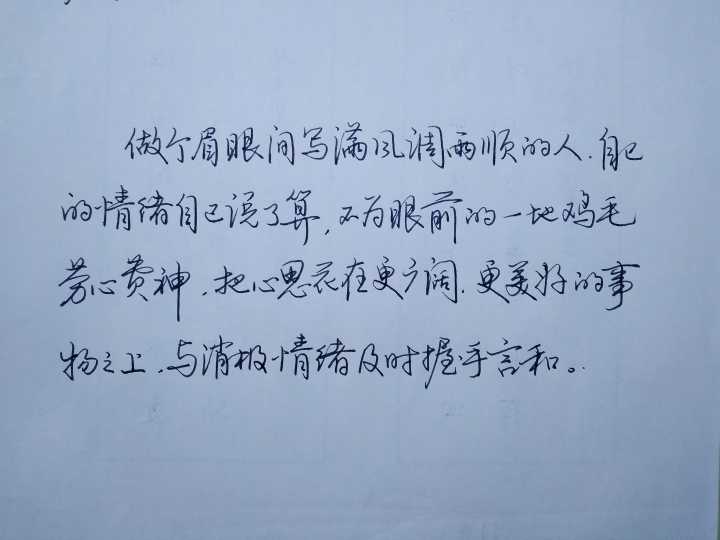 做个眉眼间写满风调雨顺的人.自己
的情绪自己说了算,不为眼前的一地鸡毛
劳心费神.把心思花在更广阔.更美好的事
物之上.与消极情绪及时握手言和。